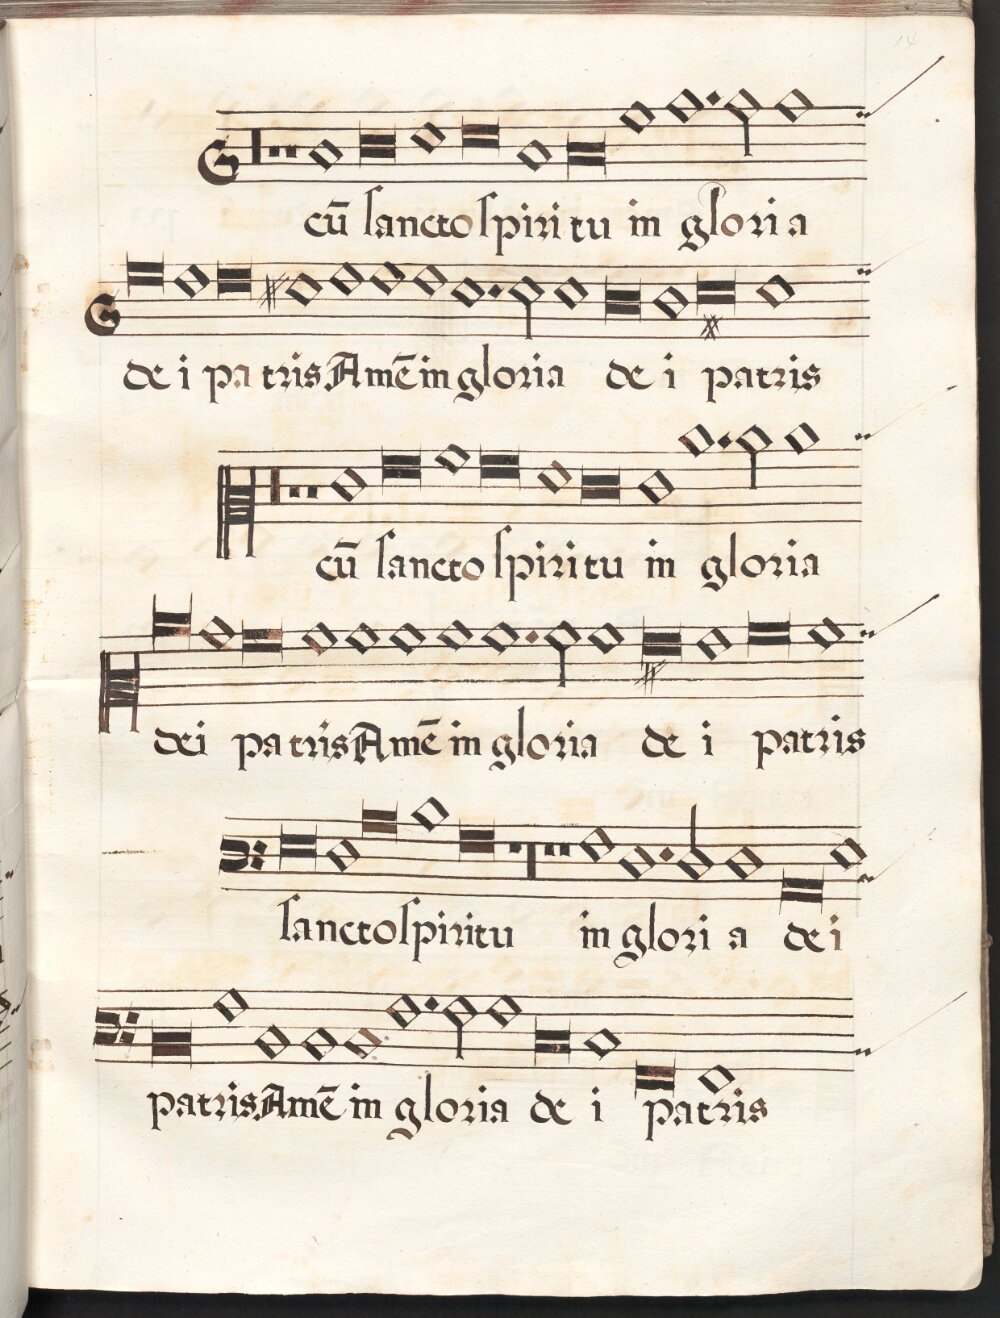 14
cũ sancto spiritu in gloria
dei patris Amẽ in gloria dei patris
cũ sancto spiritu in gloria
dei patris Amẽ in gloria dei patris
sancto spiritu in gloria dei
patris Amẽ in gloria dei patris